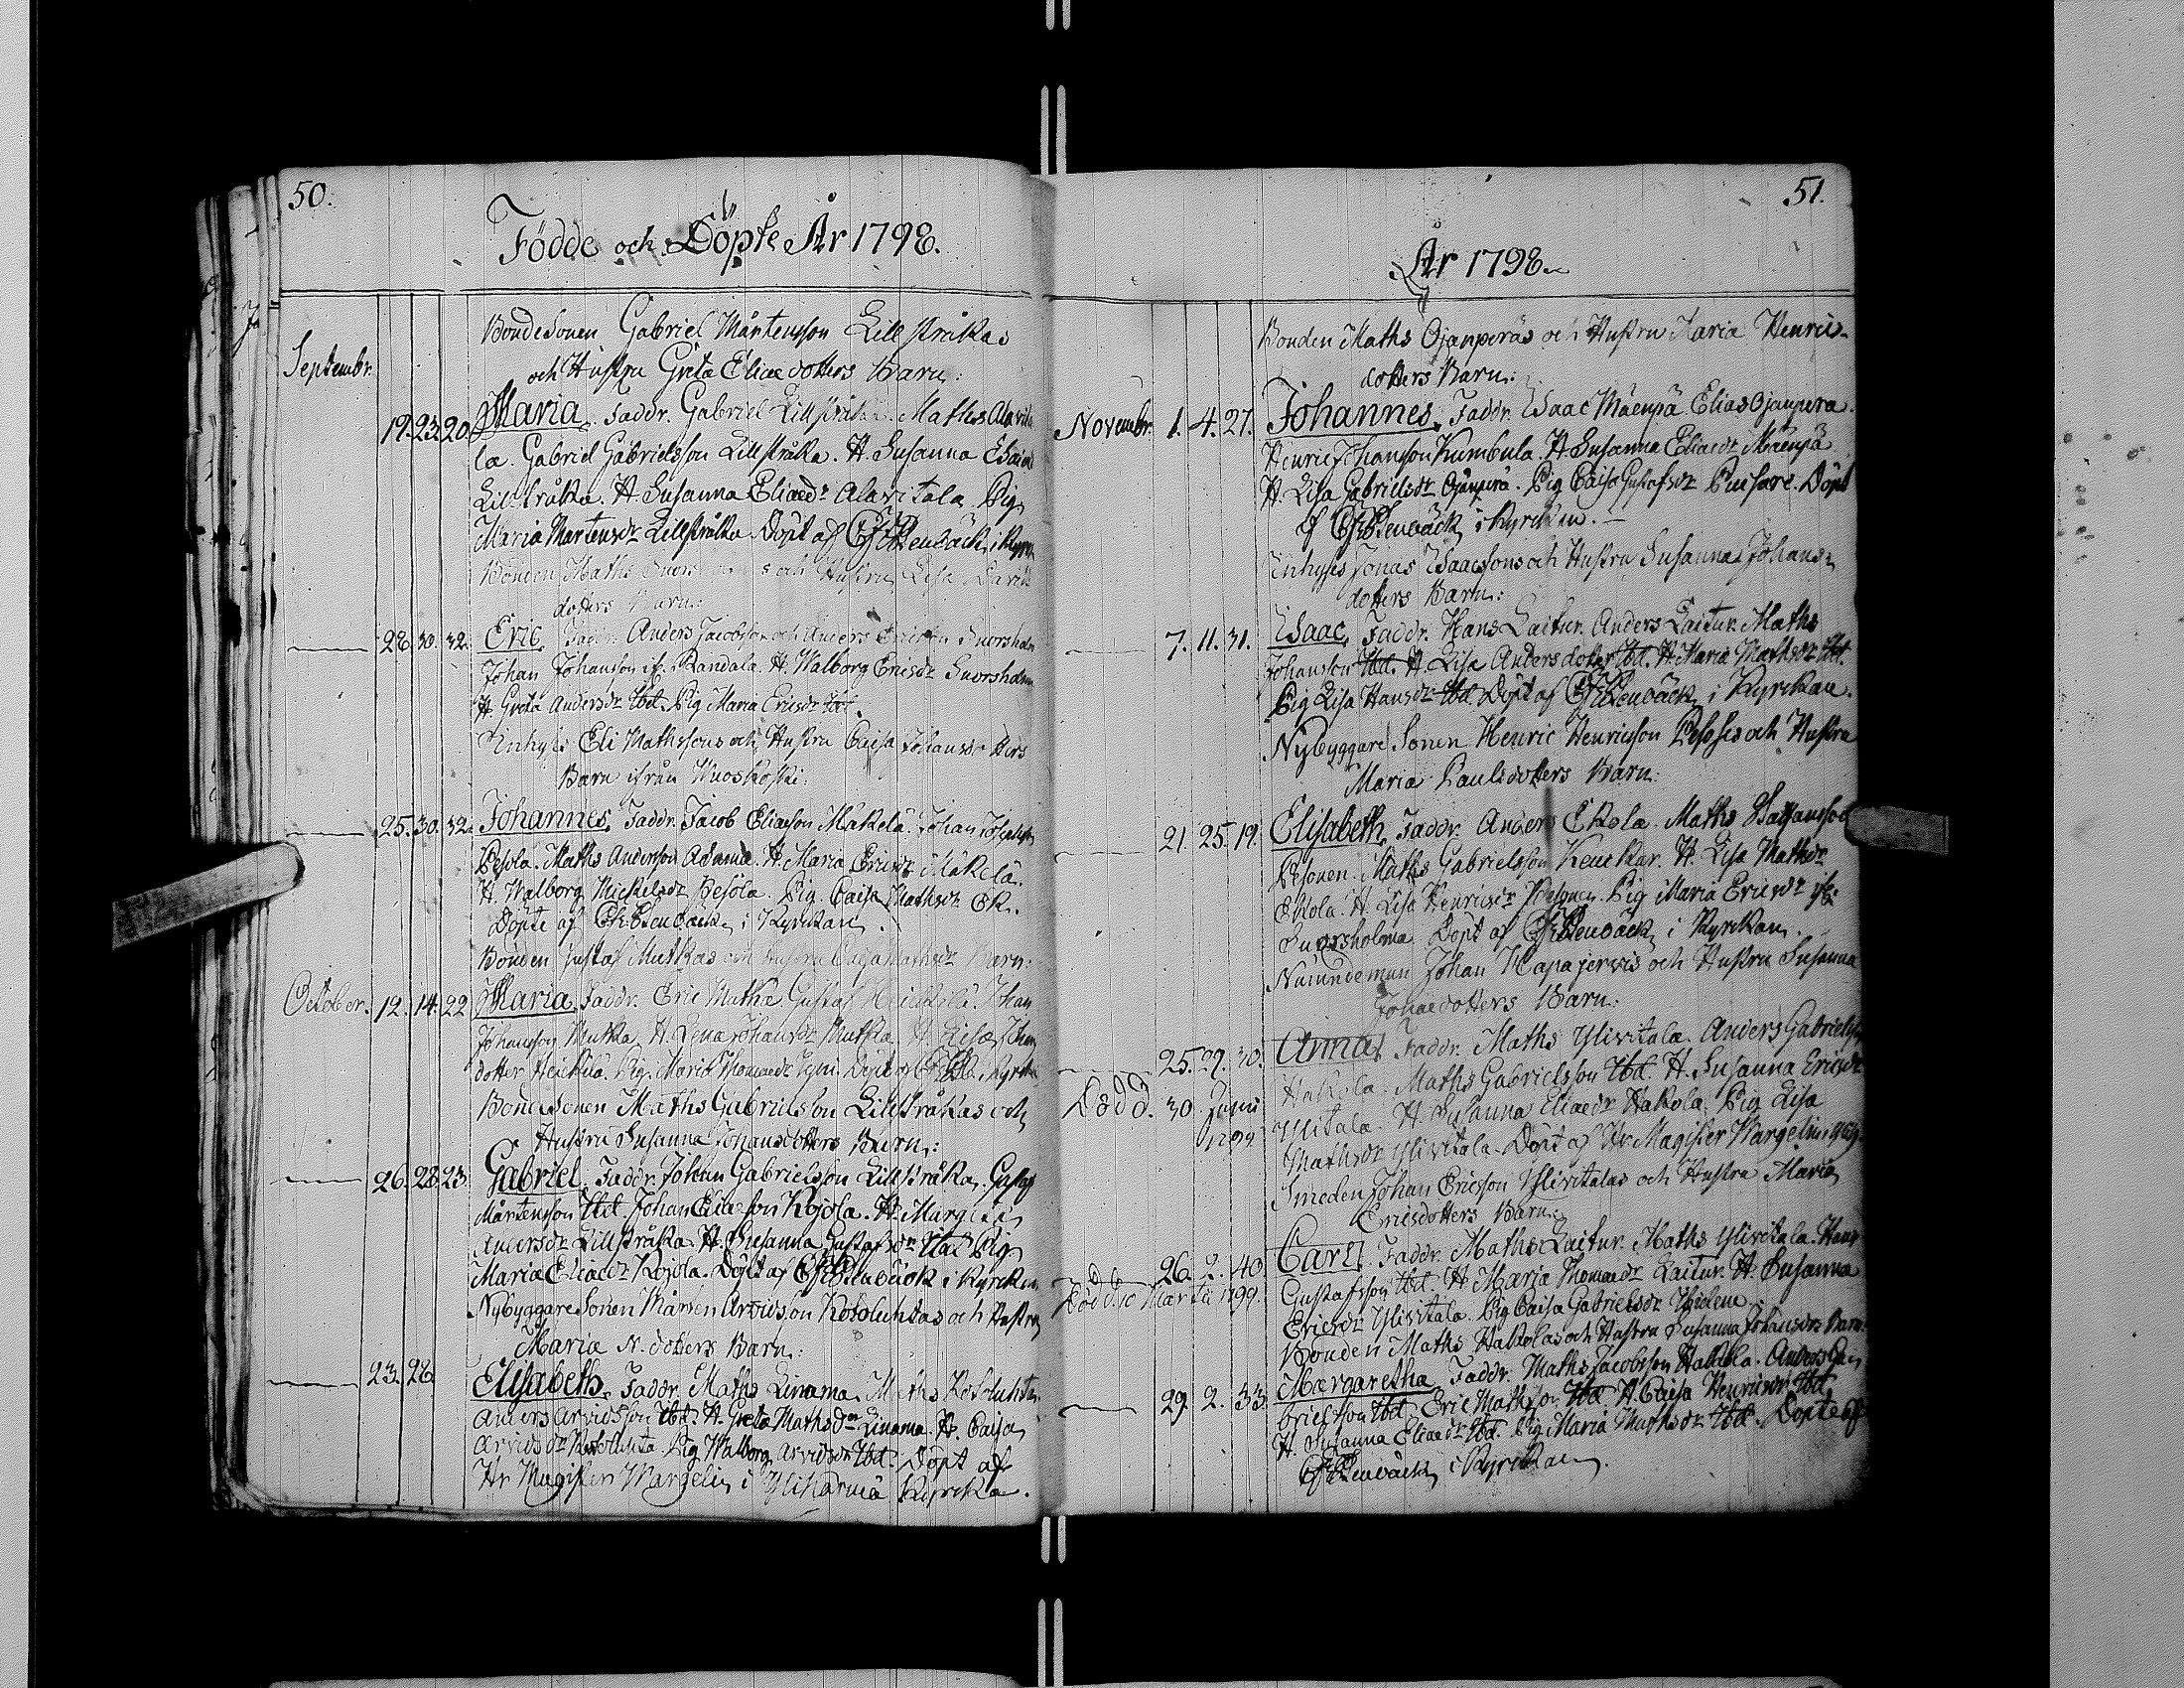 50.
Födde och Döpte År 1798.
BondeSonen Gabriel Mårtensson Lillstråkas
Septembr.
och Hustru Greta Eliaedotters Barn:
19. 23. 20. Maria. Faddr. Gabriel Lillstråka. Mathes Alavita
la. Gabriel Gabrielsson Lillstråka. H. Susanna Esaiae
Lillstråka. H. Susanna Eliaedr Alavitala. Pig.
Maria Mårtensdr Lillstråka. Döpt af Stenbäck i Kyrk
Bonden Maths och Hustru Lisa Davids
dotters Barn:
28. 30. 32. Eric. Faddr. Anders Jacobsson och Anders Ericsson Snorsholm
Johan Johansson if. Randala. H. Walborg Ericsdr Snorsholm
H. Greta Andersdr Ibd. Pig Maria Ericsdr Ibd.
Inhyses Eli Mathssons och Hustru Caisa Johansdotters
Barn ifrån Wuoskoski:
25. 30. 32. Johannes. Faddr. Jacob Eliaeson Mäkelä. Johan
Pesola. Maths Andersson Adama. H. Maria Ericsdr Mäkelä.
H. Walborg Mickelsdr Pesola. Pig. Caisa Mathsdr Ek.
Döpte af Stenbäck i Kyrckan.
Bonden Gustaf Mutkas och Hustru Caisa Mathsdr Barn:
October. 12. 14. 22 Maria. Faddr. Eric Mutka. Gustaf Heickilä. Johan
Johansson Mutka. H. Lena Johansdr Mutka. H. Lisa Johans
dotter Heickilä. Pig. Maria Thomaedr Döpt af Kyrck
BondeSonen Maths Gabrielsson Lillstråkas och
Hustru Susanna Johansdotters Barn:
26. 28. 23. Gabriel. Faddr. Johan Gabrielsson Lillstråka. Gustaf
Mårtensson Ibd. Johan Eliaesson Kojola. H. Margeta
Andersdr Lillstråka. H. Susanna Gustafsdr Ibd. Pig.
Maria Eliaedr Kojola. Döpt af Stenbäck i Kyrckan
NybyggareSonen Mårten Arvidsson Kotoluhtas och Hustru
Maria N. dotters Barn:
23. 28 Elisabeth. Faddr. Maths Linama. Maths Kotoluhta
Anders Arvidsson Ibd. H. Greta Mathsdr Linama. H. Caisa
Arvidsdr Kotoluhta. Pig Walborg Arvidsdr Ibd. Döpt af
Hr Magister Wargelin i Ylihärmä Kyrcka.
51.
År 1798.
Bonden Maths Ojanperäs och Hustru Maria Henrics-
dotters Barn:
Novembr. 1. 4. 27. Johannes. Faddr. Isaac Mäenpä Elias Ojanpera.
Henric Johansson Kumbula. H. Susanna Eliaedr Mäenpä
H. Lisa Gabrielsdr Ojanpera. Pig Caisa Gustafsdr Puisari. Döpt
af Stenbäck i Kyrckan.
Inhyses Jonas Isaacssons och Hustru Susanna Johans
dotters Barn:
7. 11. 31. Isaac. Faddr. Hans Laitur. Anders Laitur. Maths
Johansson Ibd. H. Lisa Andersdotter Ibd. H. Maria Mathsdr Ibd.
Pig Lisa Hansdr Ibd. Döpt af Stenbäck i Kyrckan.
Nybyggare Sonen Henric Henricsson och Hustru
Maria Paulsdotters Barn:
21. 25. 19. Elisabeth. Faddr. Anders Ekola. Maths
Pesonen. Maths Gabrielsson Keuckar. H. Lisa Mathsdr
Ekola. H. Lisa Henricsdr Pesonen. Pig Maria Ericsdr if.
Snorsholma. Döpt af Stenbäck i Kyrckan.
Nämndeman Johan Hapajerwis och Hustru Susanna
Jonaedotters Barn:
25. 29. 30. Anna. Faddr. Maths Ylivitala. Anders Gabrielsson
Hakola. Maths Gabrielsson Ibd. H. Susanna Ericsdr
Död d. 30. Junii
1799.
Ylivitala. H. Susanna Eliaedr Hakola. Pig Lisa
Mathsdr Ylivitala. Döpt af Hr Magister Wargelin
Smeden Johan Ericsson Ylivitalas och Hustru Maria
Ericsdotters Barn:
26. 2. 40 Carl. Faddr. Maths Laitur. Maths Ylivitala. Hans
Död d. 10 Martii 1799.
Gustafsson Ibd. H. Maria Thomaedr Laitur. H. Susanna
Ericsdr Ylivitala. Pig Caisa Gabrielsdr
Bonden Maths Hakolas och Hustru Susanna Johansdrs Barn:
29. 2. 33. Margaretha. Faddr. Maths Jacobsson Hakola. Anders Ga
brielsson Ibd. Eric Mathsson Ibd. H. Caisa Henricsdr Ibd.
H. Susanna Eliaedr Ibd. Pig Maria Mathsdr Ibd. Döpte af
Stenbäck i Kyrckan.